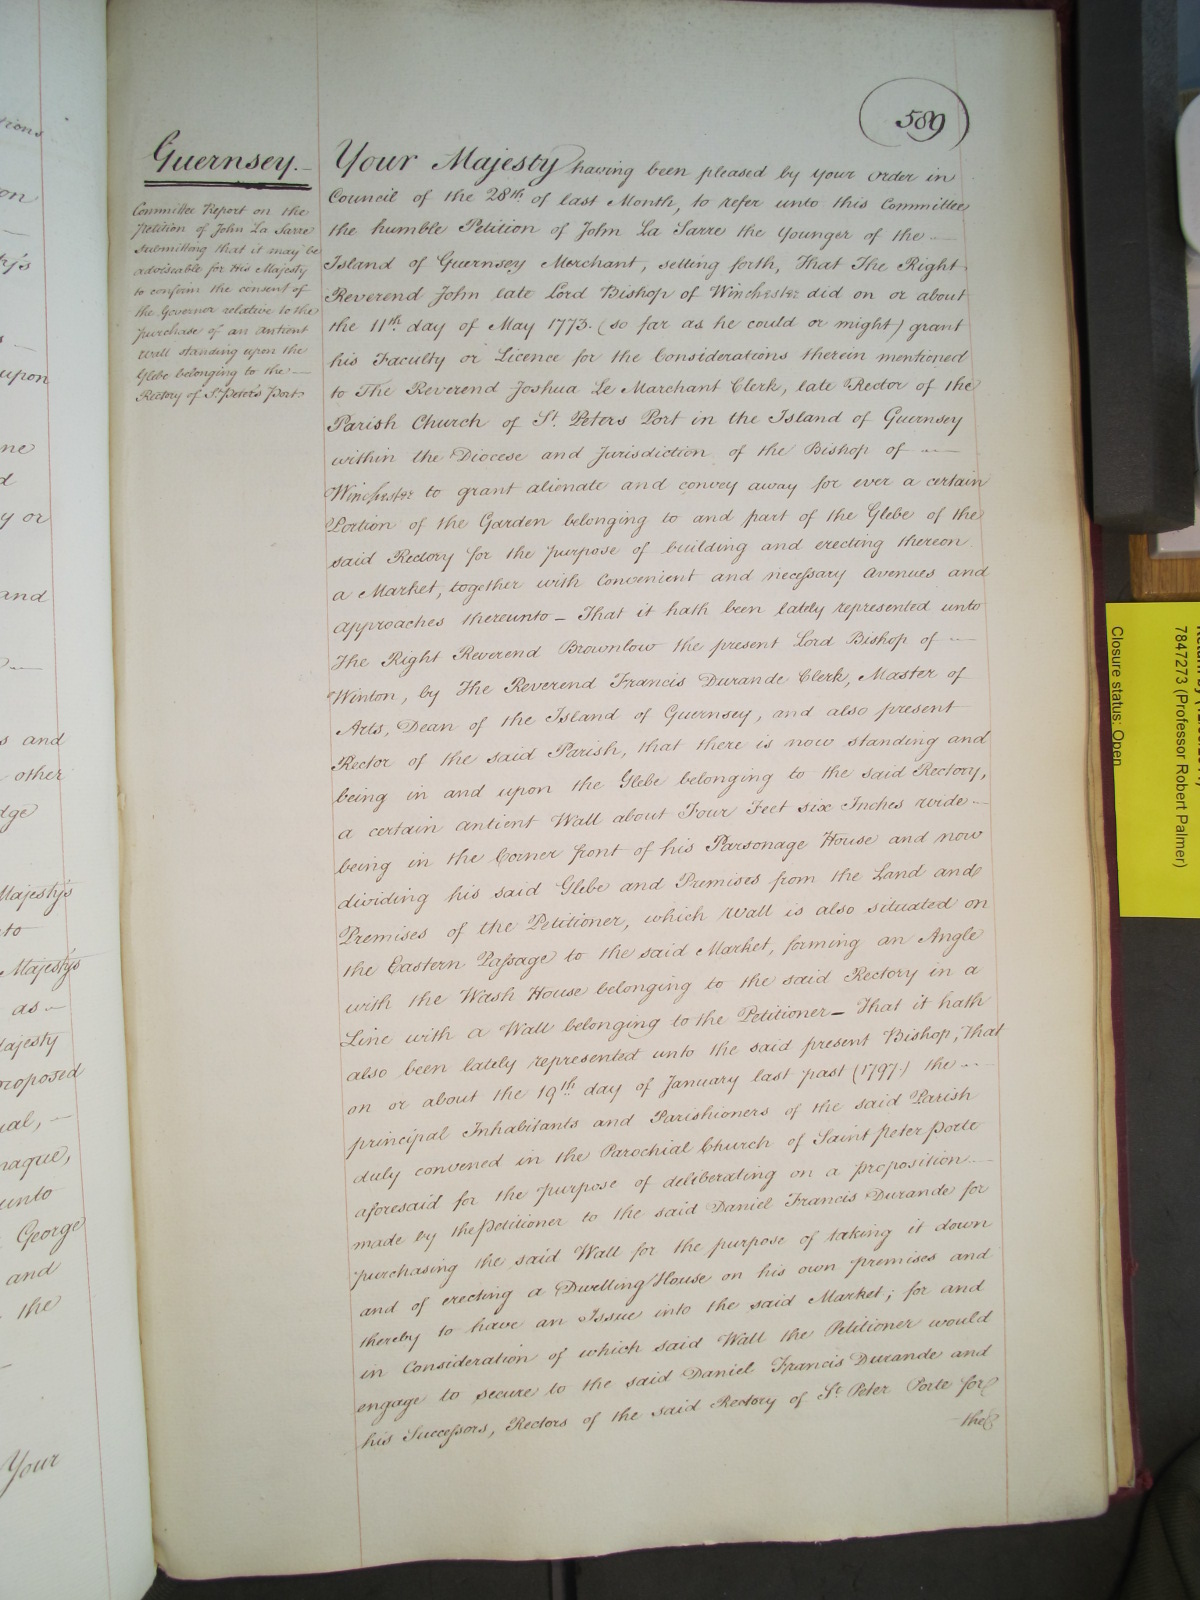 589
Guernsey.
Committee Report on the
Petition of John La Sarre
submitting that it may be
adviseable for His Majesty
to confirm the consent of
the Governor relative to the
purchase of an antient
Wall standing upon the
Glebe belonging to the
Rectory of St. Peter's Port
Your Majesty having been pleased by your Order in
Council of the 28th. of last Month, to refer unto this Committee
the humble Petition of John La Sarre the Younger of the
Island of Guernsey Merchant, setting forth, That The Right
Reverend John late Lord Bishop of Winchester did on or about
the 11th. day of May 1773. (so far as he could or might) grant
his Faculty or Licence for the Considerations therein mentioned
to The Reverend Joshua Le Marchant Clerk, late Rector of the
Parish Church of St. Peters Port in the Island of Guernsey
within the Diocese and Jurisdiction of the Bishop of
Winchester to grant alienate and convey away for ever a certain
Portion of the Garden belonging to and part of the Glebe of the
said Rectory for the purpose of building and erecting thereon
a Market, together with Convenient and necessary Avenues and
approaches thereunto – That it hath been lately represented unto
The Right Reverend Brownlow the present Lord Bishop of
Winton, by The Reverend Francis Durande Clerk, Master of
Arts, Dean of the Island of Guernsey, and also present
Rector of the said Parish, that there is now standing and
being in and upon the Glebe belonging to the said Rectory,
a certain antient Wall about Four Feet six Inches wide
being in the Corner front of his Parsonage House and now
dividing his said Glebe and Premises from the Land and
Premises of the Petitioner, which Wall is also situated on
the Eastern Passage to the said Market, forming an Angle
with the Wash House belonging to the said Rectory in a
Line with a Wall belonging to the Petitioner – That it hath
also been lately represented unto the said present Bishop, that
on or about the 19th. day of January last past (1797.) the
principal Inhabitants and Parishioners of the said Parish
duly convened in the Parochial Church of Saint Peter Porte
aforesaid for the purpose of deliberating on a proposition
made by the Petitioner to the said Daniel Francis Durande for
purchasing the said Wall for the purpose of taking it down
and of erecting a Dwelling House on his own premises and
thereby to have an Issue into the said Market; for and
in Consideration of which said Wall the Petitioner would
engage to secure to the said Daniel Francis Durande and
his Successors, Rectors of the said Rectory of St. Peter Porte for
the
on
upon
and
y or
s and
other
Majesty's
to
Majesty's
as
proposed
unto
George
and
the
Your
7847273 (Professor Robert Palmer)
Closure status: Open